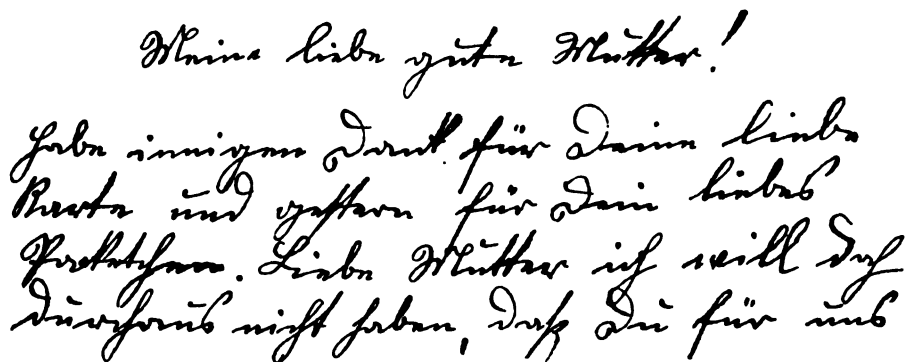 Meine liebe gute Mutter!
habe innigen Dank für Deine liebe
Karte und gestern für Dein liebes
Packetchen. Liebe Mutter ich will doch
durchaus nicht haben, daß Du für uns